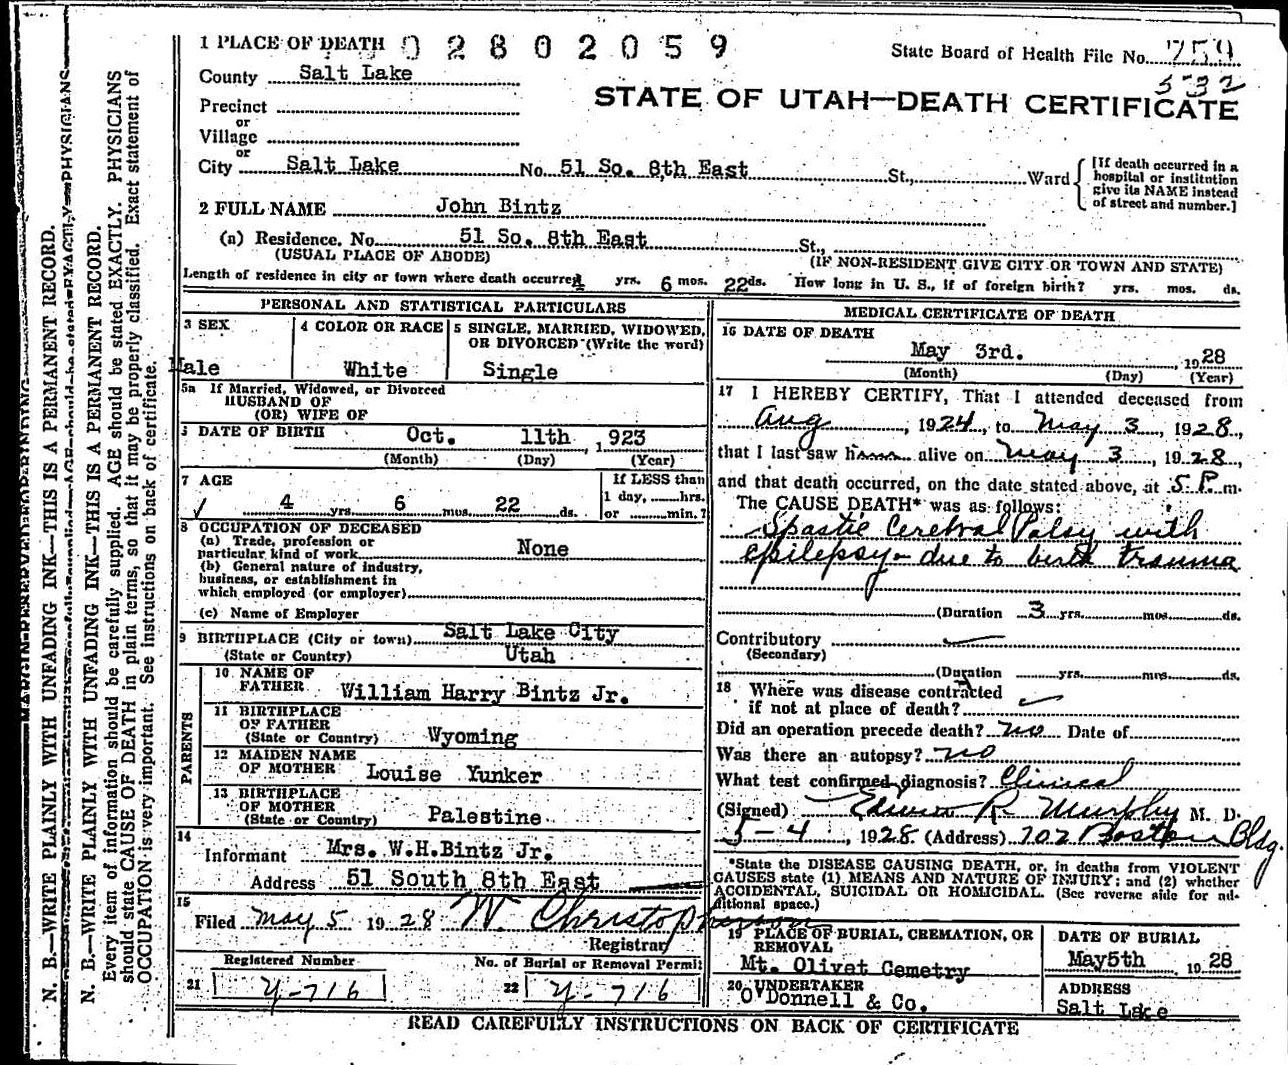 1 PLACE OF DEATH 0 2 8 0 2 0 5 9
State Board of Health File No. 759
532
County Salt Lake
STATE OF UTAH—DEATH CERTIFICATE
Precinct
or
Village
or
City Salt Lake No. 51 So. 8th East St., Ward
[If death occurred in a
hospital or institution
give its NAME instead
of street and number.]
2 FULL NAME John Bintz
(a) Residence. No. 51 So. 8th East St.,
(USUAL PLACE OF ABODE) (IF NON-RESIDENT GIVE CITY OR TOWN AND STATE)
Length of residence in city or town where death occurred 4 yrs. 6 mos. 22 ds. How long in U. S., if of foreign birth? yrs. mos. ds.
PERSONAL AND STATISTICAL PARTICULARS
3 SEX
Male
4 COLOR OR RACE
White
5 SINGLE, MARRIED, WIDOWED,
OR DIVORCED (Write the word)
Single
5a If Married, Widowed, or Divorced
HUSBAND OF
(OR) WIFE OF
DATE OF BIRTH Oct. 11th ,1923
(Month) (Day) (Year)
7 AGE
4 yrs. 6 mos. 22 ds.
If LESS than
1 day, hrs.
or min.?
8 OCCUPATION OF DECEASED
(a) Trade, profession or
particular kind of work None
(b) General nature of industry,
business, or establishment in
which employed (or employer)
(c) Name of Employer
9 BIRTHPLACE (City or town) Salt Lake City
(State or Country) Utah
PARENTS
10 NAME OF
FATHER William Harry Bintz Jr.
11 BIRTHPLACE
OF FATHER
(State or Country) Wyoming
12 MAIDEN NAME
OF MOTHER Louise Yunker
13 BIRTHPLACE
OF MOTHER
(State or Country) Palestine
14
Informant Mrs. W.H.Bintz Jr.
Address 51 South 8th East
15
Filed May 5 1928 W. Christopherson
Registrar
Registered Number
21 y-716
No. of Burial or Removal Permit
22 y-716
MEDICAL CERTIFICATE OF DEATH
16 DATE OF DEATH
May 3rd. , 1928
(Month) (Day) (Year)
17 I HEREBY CERTIFY, That I attended deceased from
Aug , 1924, to May 3, 1928,
that I last saw him alive on May 3, 1928,
and that death occurred, on the date stated above, at 5 P. m.
The CAUSE DEATH* was as follows:
Spastic Cerebral Palsy with
epilepsy - due to birth trauma
(Duration 3 yrs. mos. ds.
Contributory
(Secondary)
(Duration yrs. mos. ds.
18 Where was disease contracted
if not at place of death?
Did an operation precede death? no Date of
Was there an autopsy? no
What test confirmed diagnosis? Clinical
(Signed) Edwin R. Murphy M. D.
5-4, 1928 (Address) 702 Boston Bldg.
*State the DISEASE CAUSING DEATH, or, in deaths from VIOLENT
CAUSES state (1) MEANS AND NATURE OF INJURY; and (2) whether
ACCIDENTAL, SUICIDAL OR HOMICIDAL. (See reverse side for ad-
ditional space.)
19 PLACE OF BURIAL, CREMATION, OR
REMOVAL
Mt. Olivet Cemetry
DATE OF BURIAL
May5th , 1928
20 UNDERTAKER
O'Donnell & Co.
ADDRESS
Salt Lake
READ CAREFULLY INSTRUCTIONS ON BACK OF CERTIFICATE
N. B.—WRITE PLAINLY WITH UNFADING INK—THIS IS A PERMANENT RECORD.
N. B.—WRITE PLAINLY WITH UNFADING INK—THIS IS A PERMANENT RECORD.
Every item of information should be carefully supplied. AGE should be stated EXACTLY. PHYSICIANS
should state CAUSE OF DEATH in plain terms, so that it may be properly classified. Exact statement of
OCCUPATION is very important. See instructions on back of certificate.